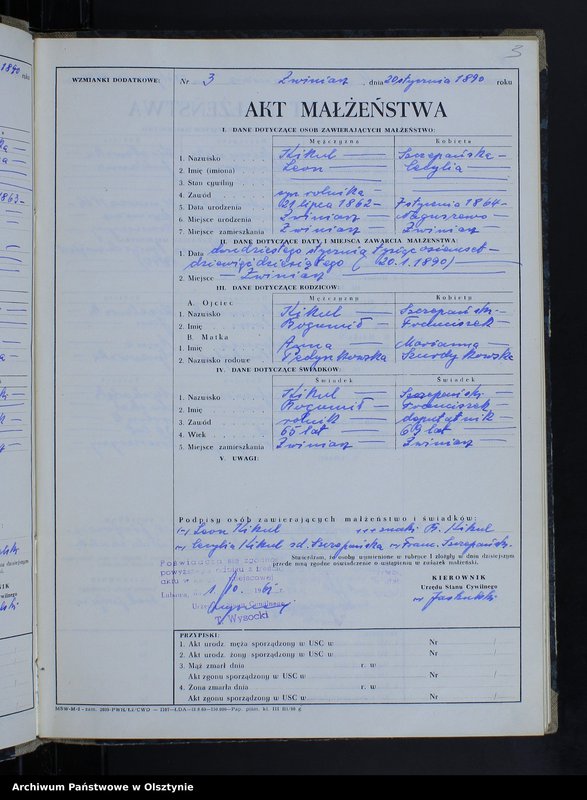 3
WZMIANKI DODATKOWE:
Nr 3 Zwiniarz, dnia 20 stycznia 1890 roku
AKT MAŁŻEŃSTWA
I. DANE DOTYCZĄCE OSÓB ZAWIERAJĄCYCH MAŁŻEŃSTWO:
Mężczyzna Kobieta
1. Nazwisko Kikul Szczepańska
2. Imię (imiona) Leon Cecylia
3. Stan cywilny
4. Zawód syn rolnika
5. Data urodzenia 29 lipca 1862 7 stycznia 1864
6. Miejsce urodzenia Zwiniarz
7. Miejsce zamieszkania Zwiniarz Zwiniarz
II. DANE DOTYCZĄCE DATY I MIEJSCA ZAWARCIA MAŁŻEŃSTWA:
1. Data dwudziestego stycznia tysiąc osiemset
dziewięćdziesiątego (20.1.1890)
2. Miejsce Zwiniarz
III. DANE DOTYCZĄCE RODZICÓW:
Mężczyzna Kobieta
A. Ojciec
1. Nazwisko Kikul Szczepański
2. Imię Bogumił Franciszek
B. Matka
1. Imię Anna Marianna
2. Nazwisko rodowe Szwedykowska
IV. DANE DOTYCZĄCE ŚWIADKÓW:
Świadek Świadek
1. Nazwisko Kikul Szczepański
2. Imię Bogumił Franciszek
3. Zawód rolnik deputatnik
4. Wiek 65 lat 69 lat
5. Miejsce zamieszkania Zwiniarz Zwiniarz
V. UWAGI:
Podpisy osób zawierających małżeństwo i świadków:
(-) Leon Kikul +++ znaki B. Kikul
Cecylia Kikul zd. Szczepańska Franc. Szczepański
Stwierdzam, że osoby wymienione w rubryce I złożyły w dniu dzisiejszym
przede mną zgodne oświadczenie o wstąpieniu w związek małżeński.
KIEROWNIK
Urzędu Stanu Cywilnego
T. Wysocki
PRZYPISKI:
1. Akt urodz. męża sporządzony w USC w Nr /
2. Akt urodz. żony sporządzony w USC w Nr /
3. Mąż zmarł dnia r. w
Akt zgonu sporządzony w USC w Nr /
4. Żona zmarła dnia r. w
Akt zgonu sporządzony w USC w Nr /
Archiwum Państwowe w Olsztynie